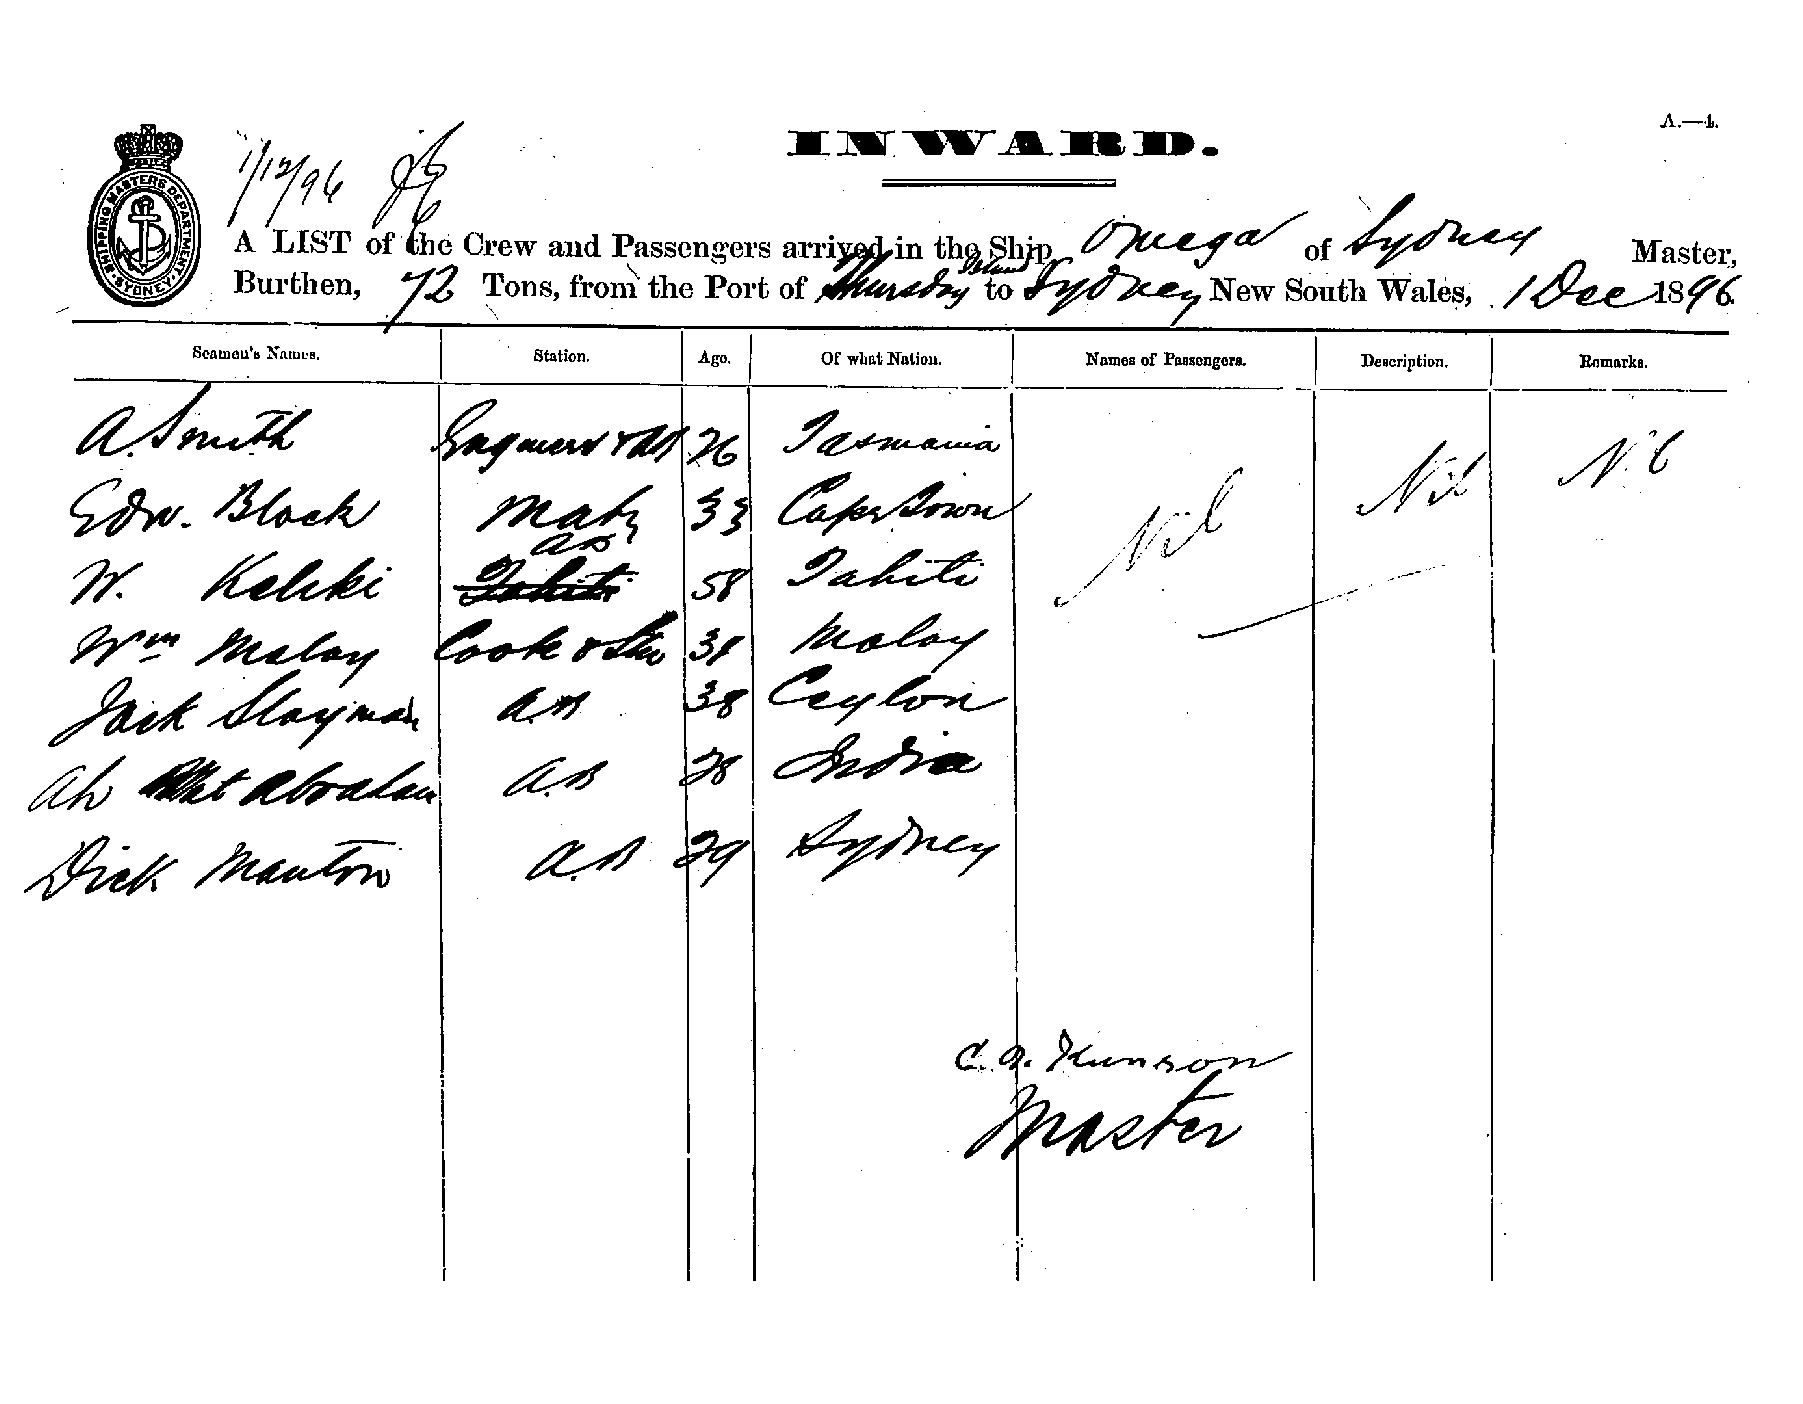 A.—4.
INWARD.
1/12/96
SHIPPING MASTERS DEPARTMENT SYDNEY
A LIST of the Crew and Passengers arrived in the Ship Omega of Sydney Master,
Burthen, 72 Tons, from the Port of Thursday Island to Sydney New South Wales, 1 Dec 1896.
Seamen's Names. Station. Age. Of what Nation. Names of Passengers. Description. Remarks.
A. Smith 26 Tasmania Nil Nil Nil
Edw. Black Mate 33 Cape Town
W. AB Tahiti 58 Tahiti
Wm Malay Cook & Stew Malay
Jack Slayman A.B 38 Ceylon
Ah Mat Abraham A.B 28 India
Dick Manton A.B 29 Sydney
C. A.
Master